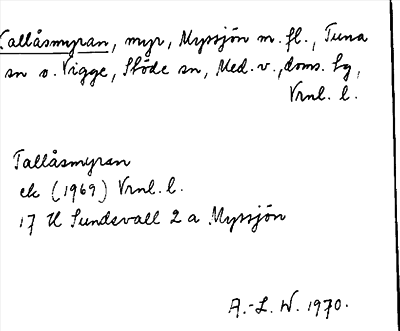 Tallåsmyran, myr, Myssjön m. fl., Tuna
sn o. Vigge, Stöde sn, Med. v., doms. bg,
Vrnl. l.
Tallåsmyran
ek (1969) Vrnl. l.
17 H Sundsvall 2 a Myssjön
A.-L. W. 1970.